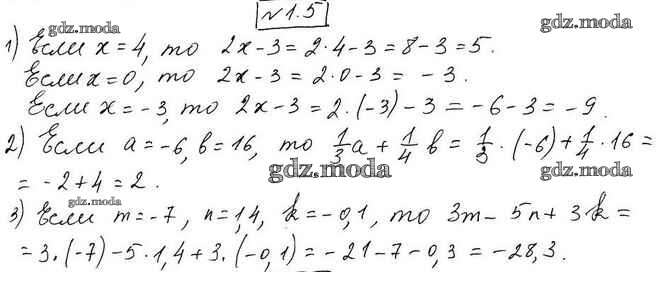 №1.5
gdz.moda
1) Если x = 4, то 2x - 3 = 2 · 4 - 3 = 8 - 3 = 5.
gdz.moda
Если x = 0, то 2x - 3 = 2 · 0 - 3 = - 3.
Если x = - 3, то 2x - 3 = 2 · (-3) - 3 = - 6 - 3 = - 9.
2) Если a = -6, b = 16, то 1/3 a + 1/4 b = 1/3 · (-6) + 1/4 · 16 =
gdz.moda gdz.moda
= - 2 + 4 = 2.
gdz.moda
3) Если m = -7, n = 1,4, k = -0,1, то 3m - 5n + 3k =
= 3 · (-7) - 5 · 1,4 + 3 · (-0,1) = - 21 - 7 - 0,3 = - 28,3.